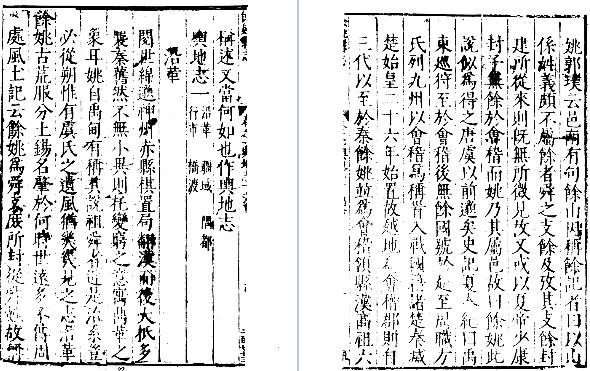 稱述又當何如也作輿地志
輿地志一 沿革 疆域 隅都
行市 橋渡
沿革
閱世綿邈神州赤縣棋置局翻漢而後大抵多
襲秦舊然不無小異則托變窮之意寓萬革之
象耳姚自禹甸有稱其說祖舜者近是派系豈
必從朔惟有虞氏之遺風猶幾幾見之志沿革
餘姚古荒服分土錫名肇於何時世遠多不傳周
處風土記云餘姚為舜支庶所封從舜姓故
姚郭璞云邑西有句餘山因稱餘記者曰以山
係姓義頗不屬餘者舜之支餘及攷其支餘封
建所從來則既無所徵見故又或以夏帝少康
封予無餘於會稽而姚乃其屬邑故曰餘姚此
說似為得之唐虞以前邈矣史記夏本紀曰禹
東巡狩至於會稽後無餘國號於越至周職方
氏列九州以會稽為稱首入戰國諸楚秦滅
楚始皇二十六年始置故越地為會稽郡則自
三代以至於秦餘姚竝為會稽領縣漢高祖六